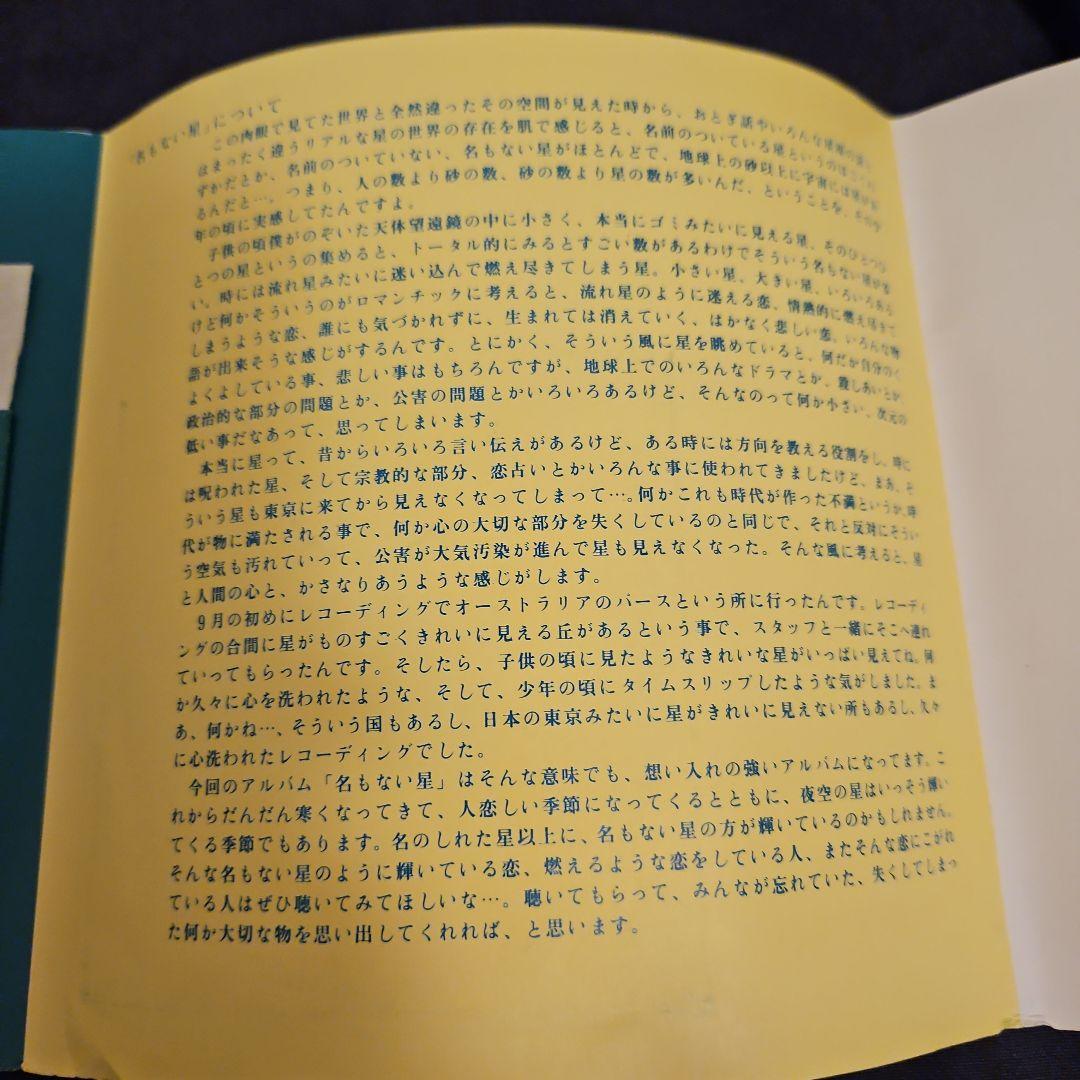 「名もない星」について
この肉眼で見てた世界と全然違ったその空間が見えた時から、おとぎ話やいろんな
はまったく違うリアルな星の世界の存在を肌で感じると、名前のついている星というのは
ずかだとか、名前のついていない、名もない星がほとんどで、地球上の砂以上に宇宙には星が
るんだと…。つまり、人の数より砂の数、砂の数より星の数が多いんだ、ということを、
年の頃に実感してたんですよ。
子供の頃僕がのぞいた天体望遠鏡の中に小さく、本当にゴミみたいに見える星、そのひとつひ
とつの星というの集めると、トータル的にみるとすごい数があるわけでそういう名もない星が
い。時には流れ星みたいに迷い込んで燃え尽きてしまう星。小さい星、大きい星、いろいろある
けど何かそういうのがロマンチックに考えると、流れ星のように迷える恋、情熱的に燃え尽きて
しまうような恋、誰にも気づかれずに、生まれては消えていく、はかなく悲しい恋、いろんな物
語が出来そうな感じがするんです。とにかく、そういう風に星を眺めていると、何だか自分のく
よくよしている事、悲しい事はもちろんですが、地球上でのいろんなドラマとか、殺しあいとか、
政治的な部分の問題とか、公害の問題とかいろいろあるけど、そんなのって何か小さい、次元の
低い事だなあって、思ってしまいます。
本当に星って、昔からいろいろ言い伝えがあるけど、ある時には方向を教える役割をし、時に
は呪われた星、そして宗教的な部分、恋占いとかいろんな事に使われてきましたけど、まあ、そ
ういう星も東京に来てから見えなくなってしまって…。何かこれも時代が作った不満というか、時
代が物に満たされる事で、何か心の大切な部分を失くしているのと同じで、それと反対にそうい
う空気も汚れていって、公害が大気汚染が進んで星も見えなくなった。そんな風に考えると、星
と人間の心と、かさなりあうような感じがします。
9月の初めにレコーディングでオーストラリアのパースという所に行ったんです。レコーディ
ングの合間に星がものすごくきれいに見える丘があるという事で、スタッフと一緒にそこへ連れ
ていってもらったんです。そしたら、子供の頃に見たようなきれいな星がいっぱい見えてね。何
か久々に心を洗われたような、そして、少年の頃にタイムスリップしたような気がしました。ま
あ、何かね…、そういう国もあるし、日本の東京みたいに星がきれいに見えない所もあるし、久々
に心洗われたレコーディングでした。
今回のアルバム「名もない星」はそんな意味でも、想い入れの強いアルバムになってます。こ
れからだんだん寒くなってきて、人恋しい季節になってくるとともに、夜空の星はいっそう輝い
てくる季節でもあります。名のしれた星以上に、名もない星の方が輝いているのかもしれません。
そんな名もない星のように輝いている恋、燃えるような恋をしている人、またそんな恋にこがれ
ている人はぜひ聴いてみてほしいな…。聴いてもらって、みんなが忘れていた、失くしてしまっ
た何か大切な物を思い出してくれれば、と思います。